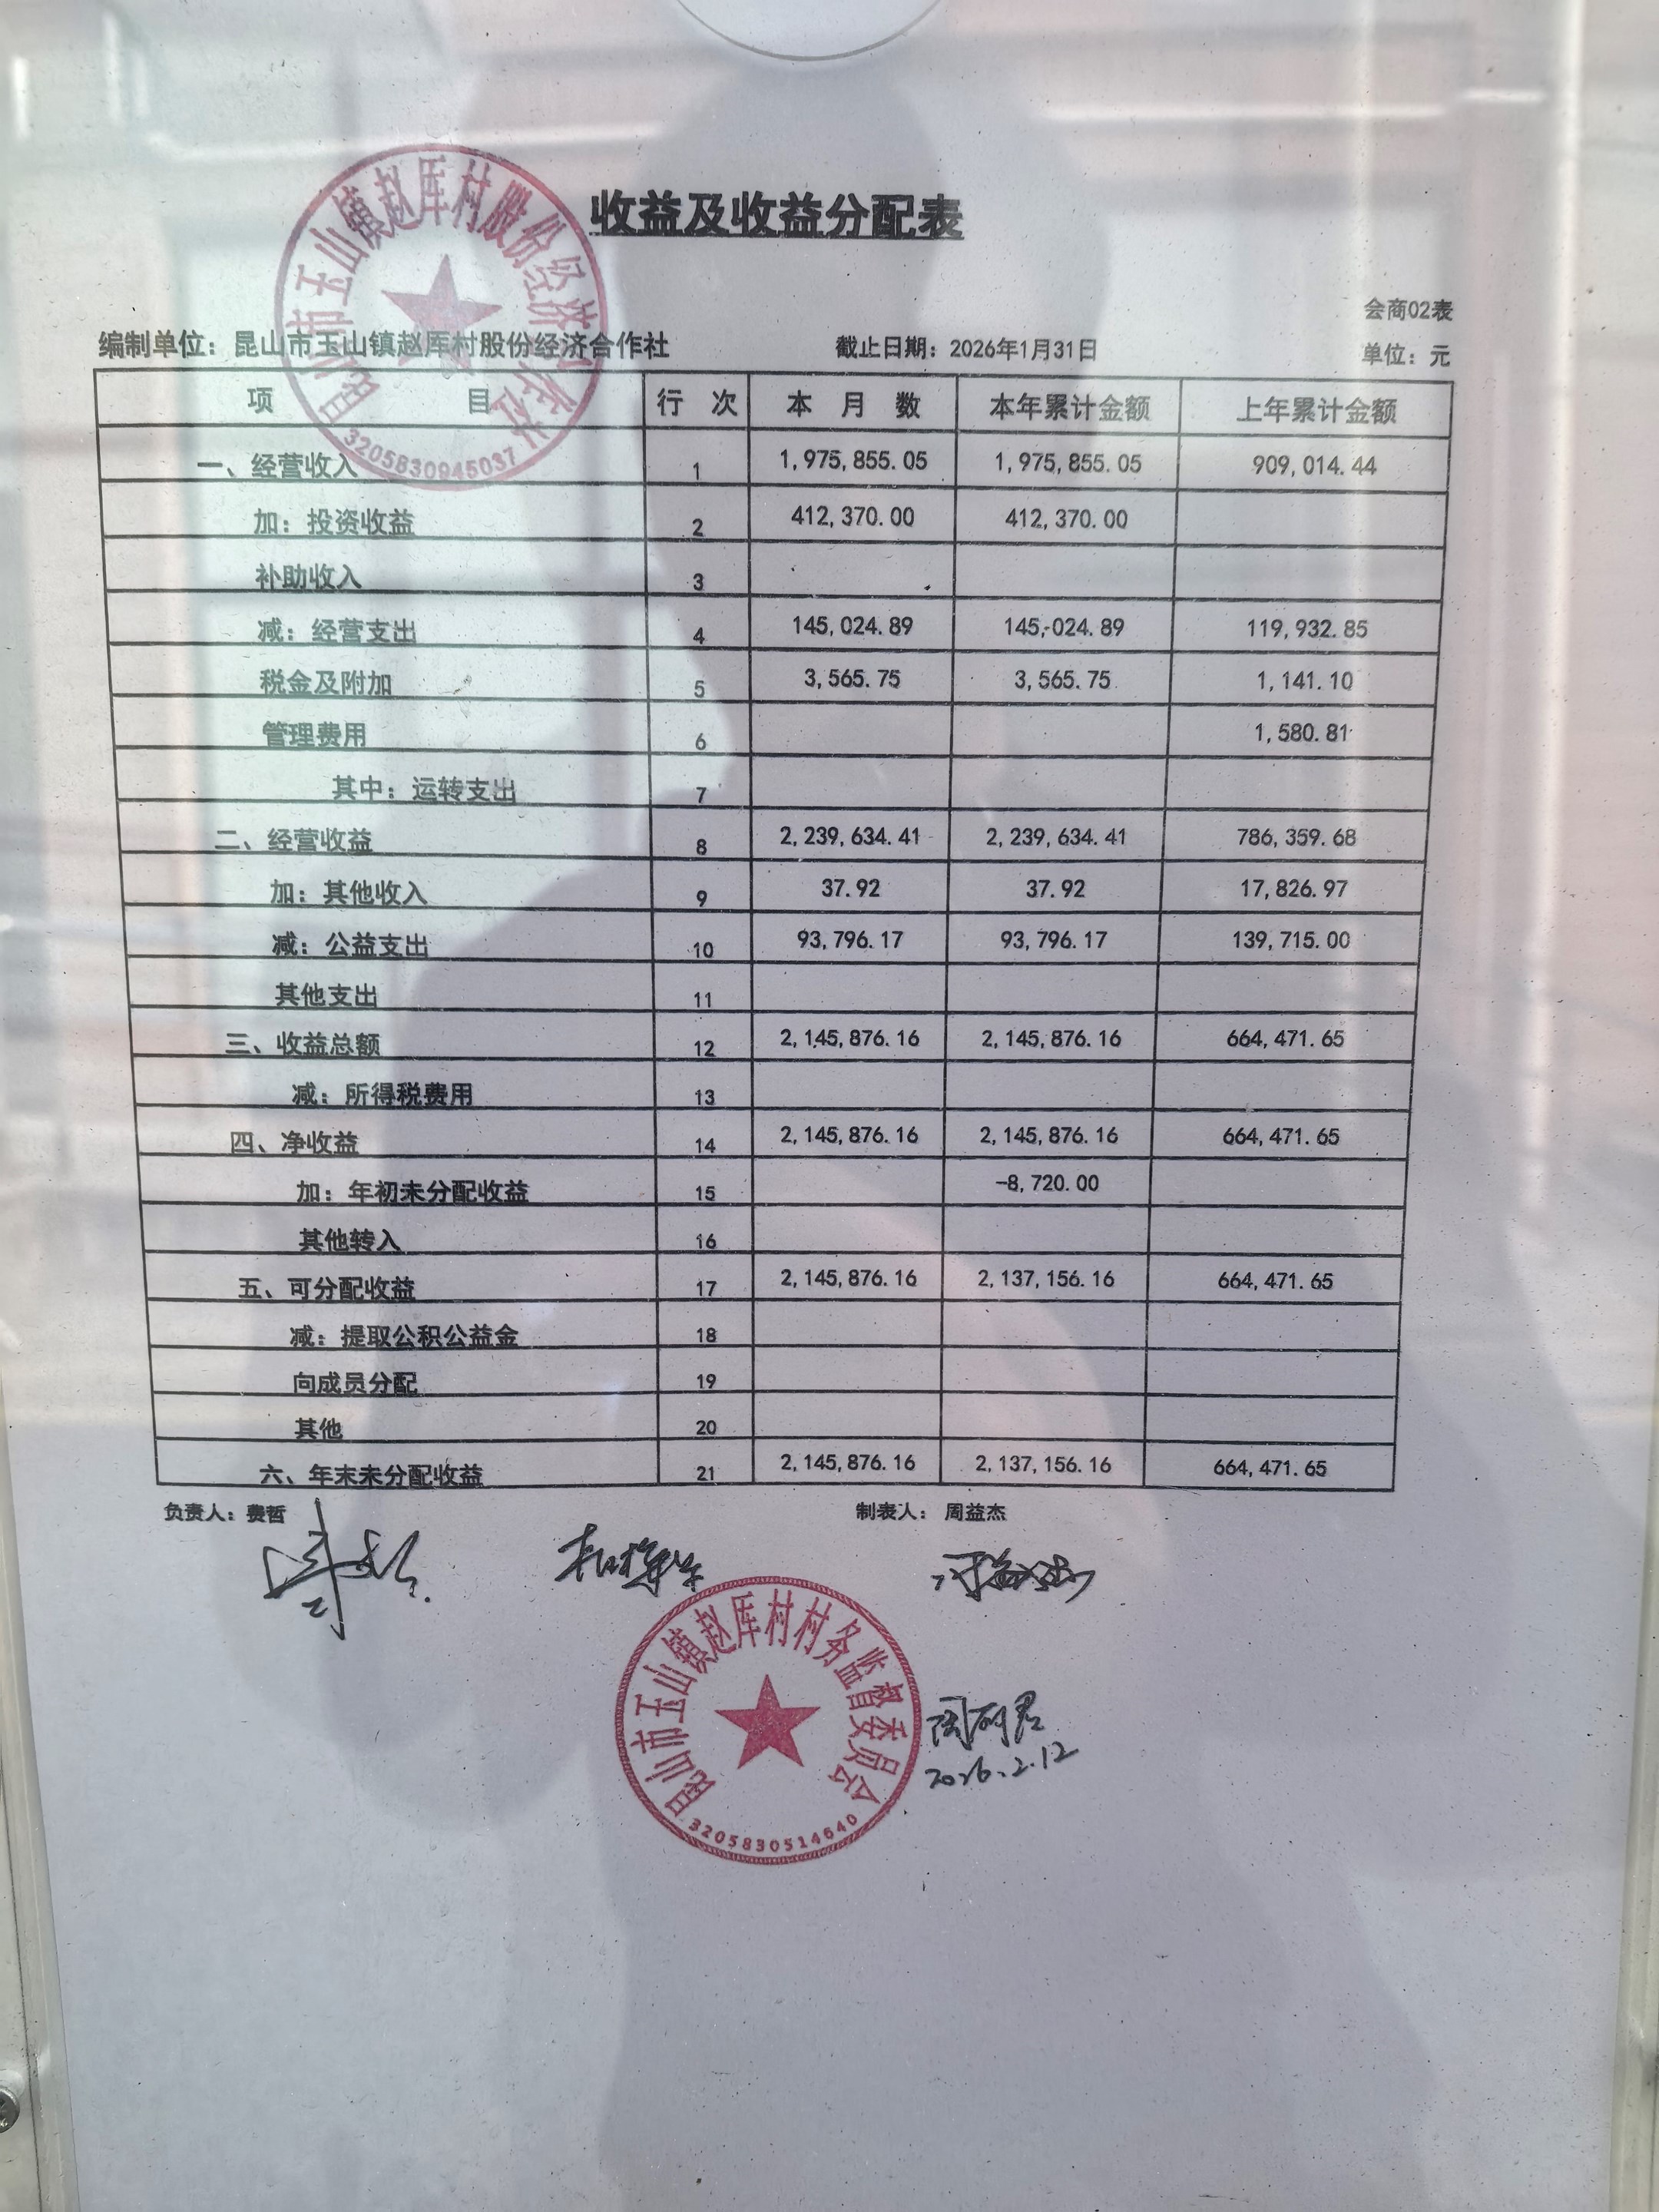 昆山市玉山镇赵厍村股份经济合作社
3205830945037
收益及收益分配表
会商02表
编制单位：昆山市玉山镇赵厍村股份经济合作社 截止日期：2026年1月31日 单位：元
项 目 行 次 本 月 数 本年累计金额 上年累计金额
一、经营收入 1 1,975,855.05 1,975,855.05 909,014.44
加：投资收益 2 412,370.00 412,370.00
补助收入 3
减：经营支出 4 145,024.89 145,024.89 119,932.85
税金及附加 5 3,565.75 3,565.75 1,141.10
管理费用 6 1,580.81
其中：运转支出 7
二、经营收益 8 2,239,634.41 2,239,634.41 786,359.68
加：其他收入 9 37.92 37.92 17,826.97
减：公益支出 10 93,796.17 93,796.17 139,715.00
其他支出 11
三、收益总额 12 2,145,876.16 2,145,876.16 664,471.65
减：所得税费用 13
四、净收益 14 2,145,876.16 2,145,876.16 664,471.65
加：年初未分配收益 15 -8,720.00
其他转入 16
五、可分配收益 17 2,145,876.16 2,137,156.16 664,471.65
减：提取公积公益金 18
向成员分配 19
其他 20
六、年末未分配收益 21 2,145,876.16 2,137,156.16 664,471.65
负责人：费哲 制表人：周益杰
昆山市玉山镇赵厍村村务监督委员会
3205830514640
2026.2.12